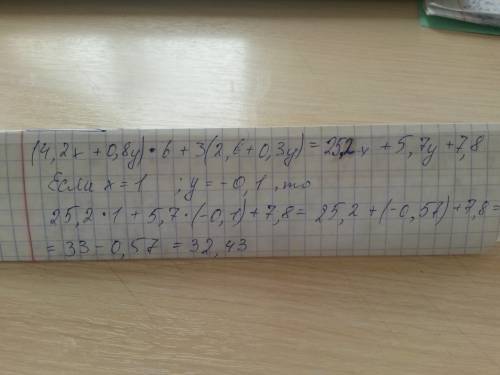 (4,2x + 0,8y) • 6 + 3(2,6 + 0,3y) = 25,2x + 5,7y + 7,8
Если x = 1 ; y = -0,1, то
25,2 • 1 + 5,7 • (-0,1) + 7,8 = 25,2 + (-0,57) + 7,8 =
= 33 - 0,57 = 32,43